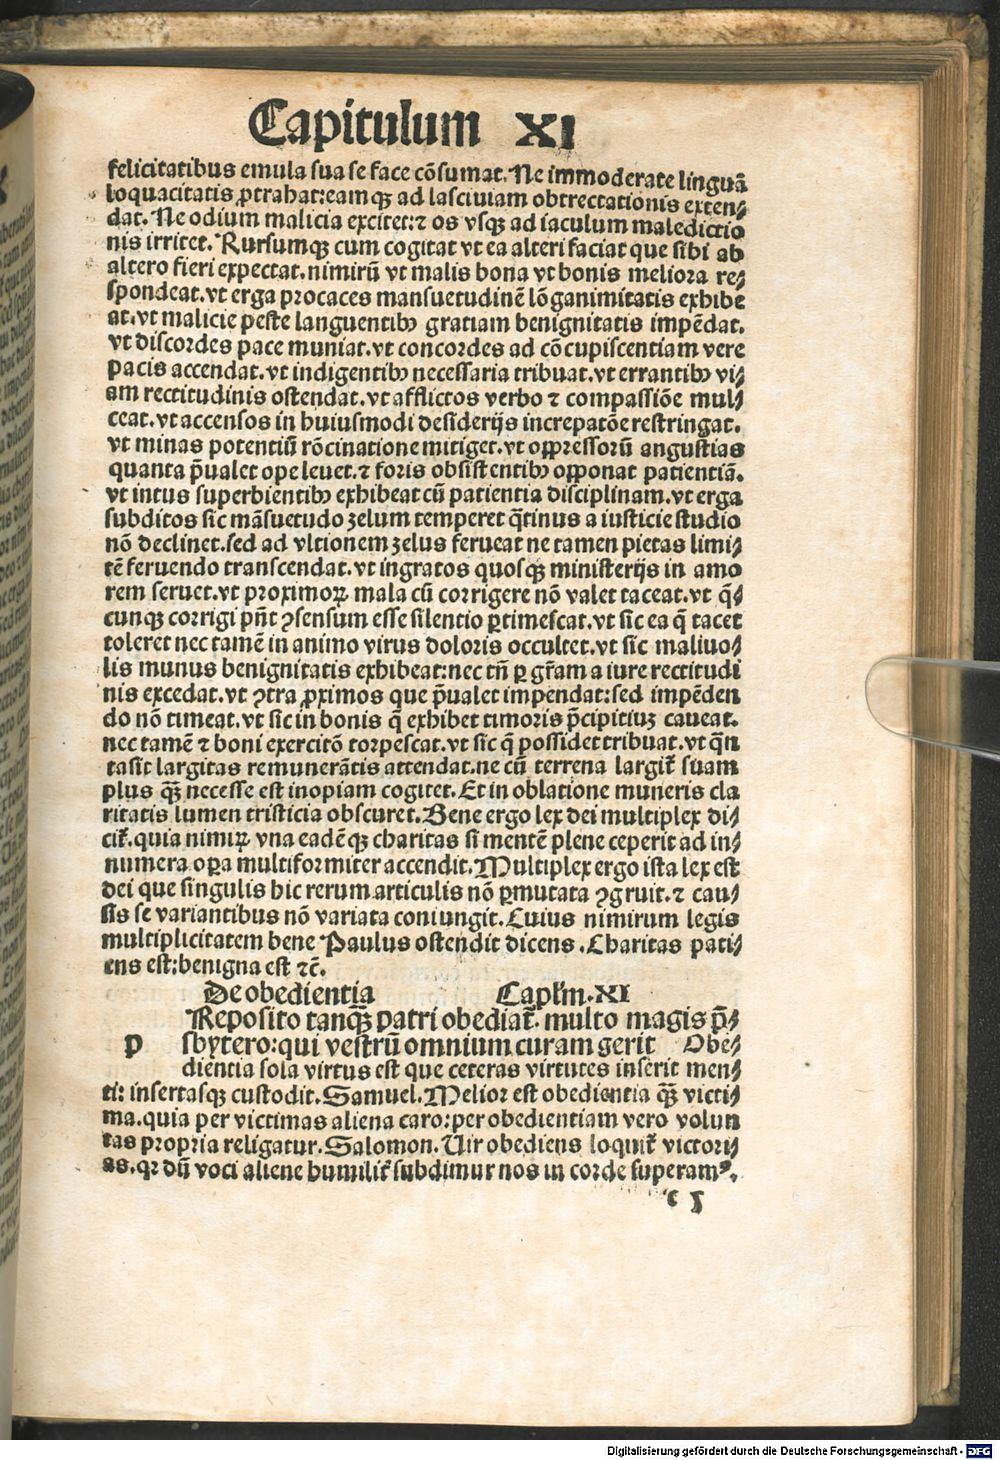 Capitulum XI
felicitatibus emula sua se face cōsumat. Ne immoderate linguā
loquacitatis ꝓtrahat: eamqꝫ ad lasciuiam obtrectationis exten⸗
dat. Ne odium malicia excitet: ⁊ os vsqꝫ ad iaculum maledictio
nis irritet. Rursumqꝫ cum cogitat vt ea alteri faciat que sibi ab
altero fieri expectat. nimirū vt malis bona vt bonis meliora re⸗
spondeat. vt erga procaces mansuetudinē lōganimitatis exhibe
at. vt malicie peste languentibꝰ gratiam benignitatis impēdat.
vt discordes pace muniat. vt concordes ad cōcupiscentiam vere
pacis accendat. vt indigentibꝰ necessaria tribuat. vt errantibꝰ vi⸗
am rectitudinis ostendat. vt afflictos verbo ⁊ compassiōe mul⸗
ceat. vt accensos in huiusmodi desiderijs increpatōe restringat.
vt minas potentiū rōcinatione mitiget. vt oppressorū angustias
quanta p̄ualet ope leuet. ⁊ foris obsistentibꝰ opponat patientiā.
vt intus superbientibꝰ exhibeat cū patientia disciplinam. vt erga
subditos sic māsuetudo zelum temperet q̄tinus a iusticie studio
nō declinet. sed ad vltionem zelus ferueat ne tamen pietas limi⸗
tē feruendo transcendat. vt ingratos quosqꝫ ministerijs in amo
rem seruet. vt proximoꝝ mala cū corrigere nō valet taceat. vt q̄⸗
cunqꝫ corrigi pn̄t ꝯsensum esse silentio ꝑtimescat. vt sic ea q̄ tacet
toleret nec tamē in animo virus doloris occultet. vt sic maliuo⸗
lis munus benignitatis exhibeat: nec tn̄ ꝑ gr̄am a iure rectitudi
nis excedat. vt ꝯtra ꝓximos que p̄ualet impendat: sed impēden
do nō timeat. vt sic in bonis q̄ exhibet timoris p̄cipitiuꝫ caueat.
nec tamē ⁊ boni exercitō torpescat. vt sic q̄ possidet tribuat. vt q̄n
ta sit largitas remunerātis attendat. ne cū terrena largit᷑ suam
plus qꝫ̄ necesse est inopiam cogitet. Et in oblatione muneris cla
ritatis lumen tristicia obscuret. Bene ergo lex dei multiplex di⸗
cit᷑. quia nimiꝝ vna eadēqꝫ charitas si mentē plene ceperit ad in⸗
numera oꝑa multiformiter accendit. Multiplex ergo ista lex est
dei que singulis hic rerum articulis nō ꝑmutata ꝯgruit. ⁊ cau⸗
sis se variantibus nō variata coniungit. Cuius nimirum legis
multiplicitatem bene Paulus ostendit dicens. Charitas pati⸗
ens est: benigna est ⁊c̄.
De obedientia Capl'm. XI
Reposito tanqꝫ̄ patri obediat᷑. multo magis p̄⸗
p sbytero: qui vestrū omnium curam gerit Obe⸗
dientia sola virtus est que ceteras virtutes inserit men⸗
ti: insertasqꝫ custodit. Samuel. Melior est obedientia qꝫ̄ victi⸗
ma. quia per victimas aliena caro: per obedientiam vero volun
tas propria religatur. Salomon. Uir obediens loquit᷑ victori⸗
as. qꝛ dū voci aliene humilit᷑ subdimur nos in corde superamꝰ.